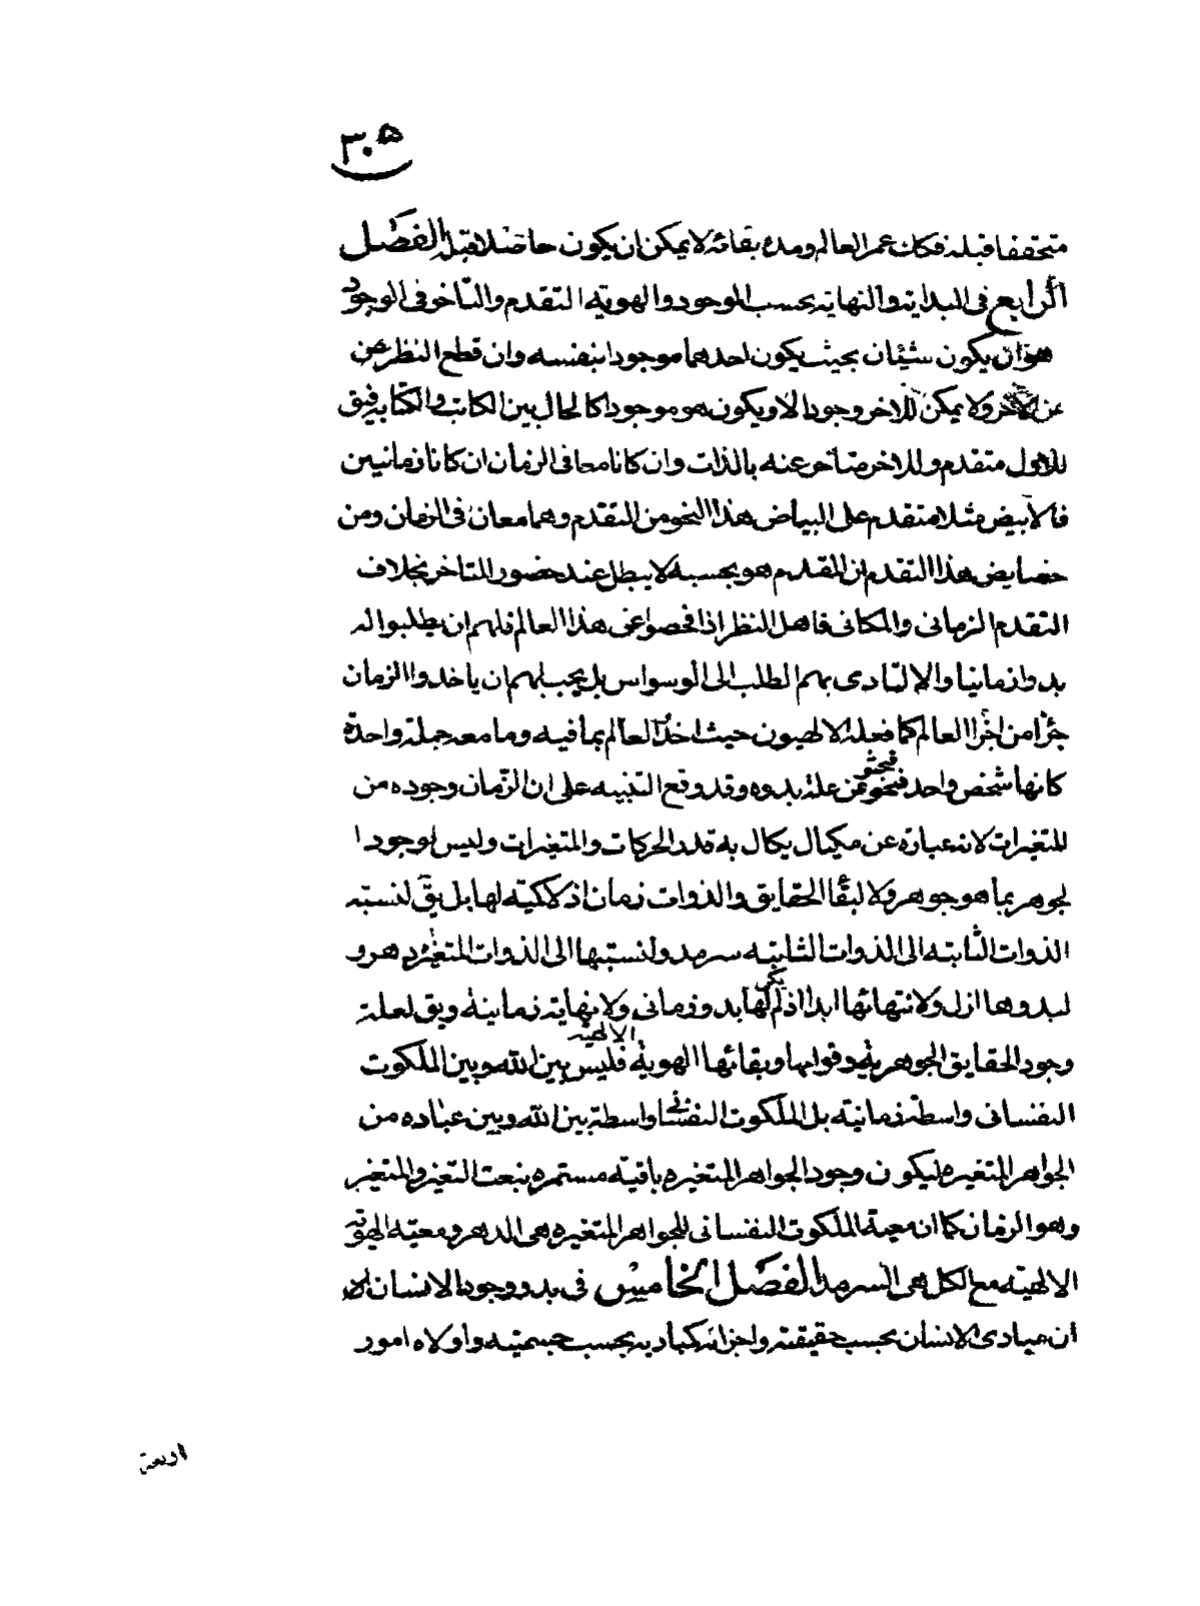 ٣٠٥
متحققا قبله فكك عمر العالم ومدة بقائه لا يمكن ان يكون حاصلا قبله الفصل
الرابع في البداية والنهاية بحسب الوجود والهوية التقدم والتاخر في الوجود
هو ان يكون شيئان بحيث يكون احدهما موجودا بنفسه وان قطع النظر عن
عن الآخر ولا يمكن للاخر وجود الا ويكون هو موجودا كالحال بين الكاتب والكتابة فيق
للاول متقدم وللاخر متاخر عنه بالذات وان كانا معا في الزمان ان كانا زمانيين
فالابيض مثلا متقدم على البياض هذا النحو من التقدم وهما معان في الزمان ومن
خصايص هذا التقدم ان المقدم هو بحسبه لا يبطل عند حضور المتاخر بخلاف
التقدم الزماني والمكاني فاهل النظر اذا فحصوا عن هذا العالم فلهم ان يطلبوا له
بدوا زمانيا والا لتادى بهم الطلب الى الوسواس بل يجب لهم ان ياخذوا الزمان
جزا من اجزا العالم كما فعله الالهيون حيث اخذ العالم بما فيه وما معه جملة واحدة
كانها شخص واحد فبحثو عن علة بدوه وقد وقع التنبيه على ان الزمان وجوده من
المتغيرات لانه عبارة عن مكيال يكال به قدر الحركات والمتغيرات وليس لوجود ا
لجوهر بما هو جوهر ولا لبقا الحقايق والذوات زمان اذ لا كمية لها بل يق لنسبة
الذوات الثابته الى الذوات الثابتة سرمد ولنسبتها الى الذوات المتغيرة دهر و
لبدوها ازل ولانتهائها ابدا اذ لم يكن لها بدو زماني ولا نهاية زمانية ويق لعلة
وجود الحقايق الجوهرية وقوامها وبقائها الهوية الالهية فليس بين الله وبين الملكوت
النفساني واسطة زمانية بل الملكوت النفساني واسطة بين الله وبين عباده من
الجواهر المتغيره ليكون وجود الجواهر المتغيره باقية مستمره بنعت التغير والمتغير
وهو الزمان كما ان معية الملكوت النفساني للجواهر المتغيره هي الدهر ومعية الهوية
الالهية مع الكل هي السرمد الفصل الخامس في بدو وجود الانسان
ان مبادى الانسان بحسب حقيقته واجزائه كمباديه بحسب جسميته واولاه امور
اربعة